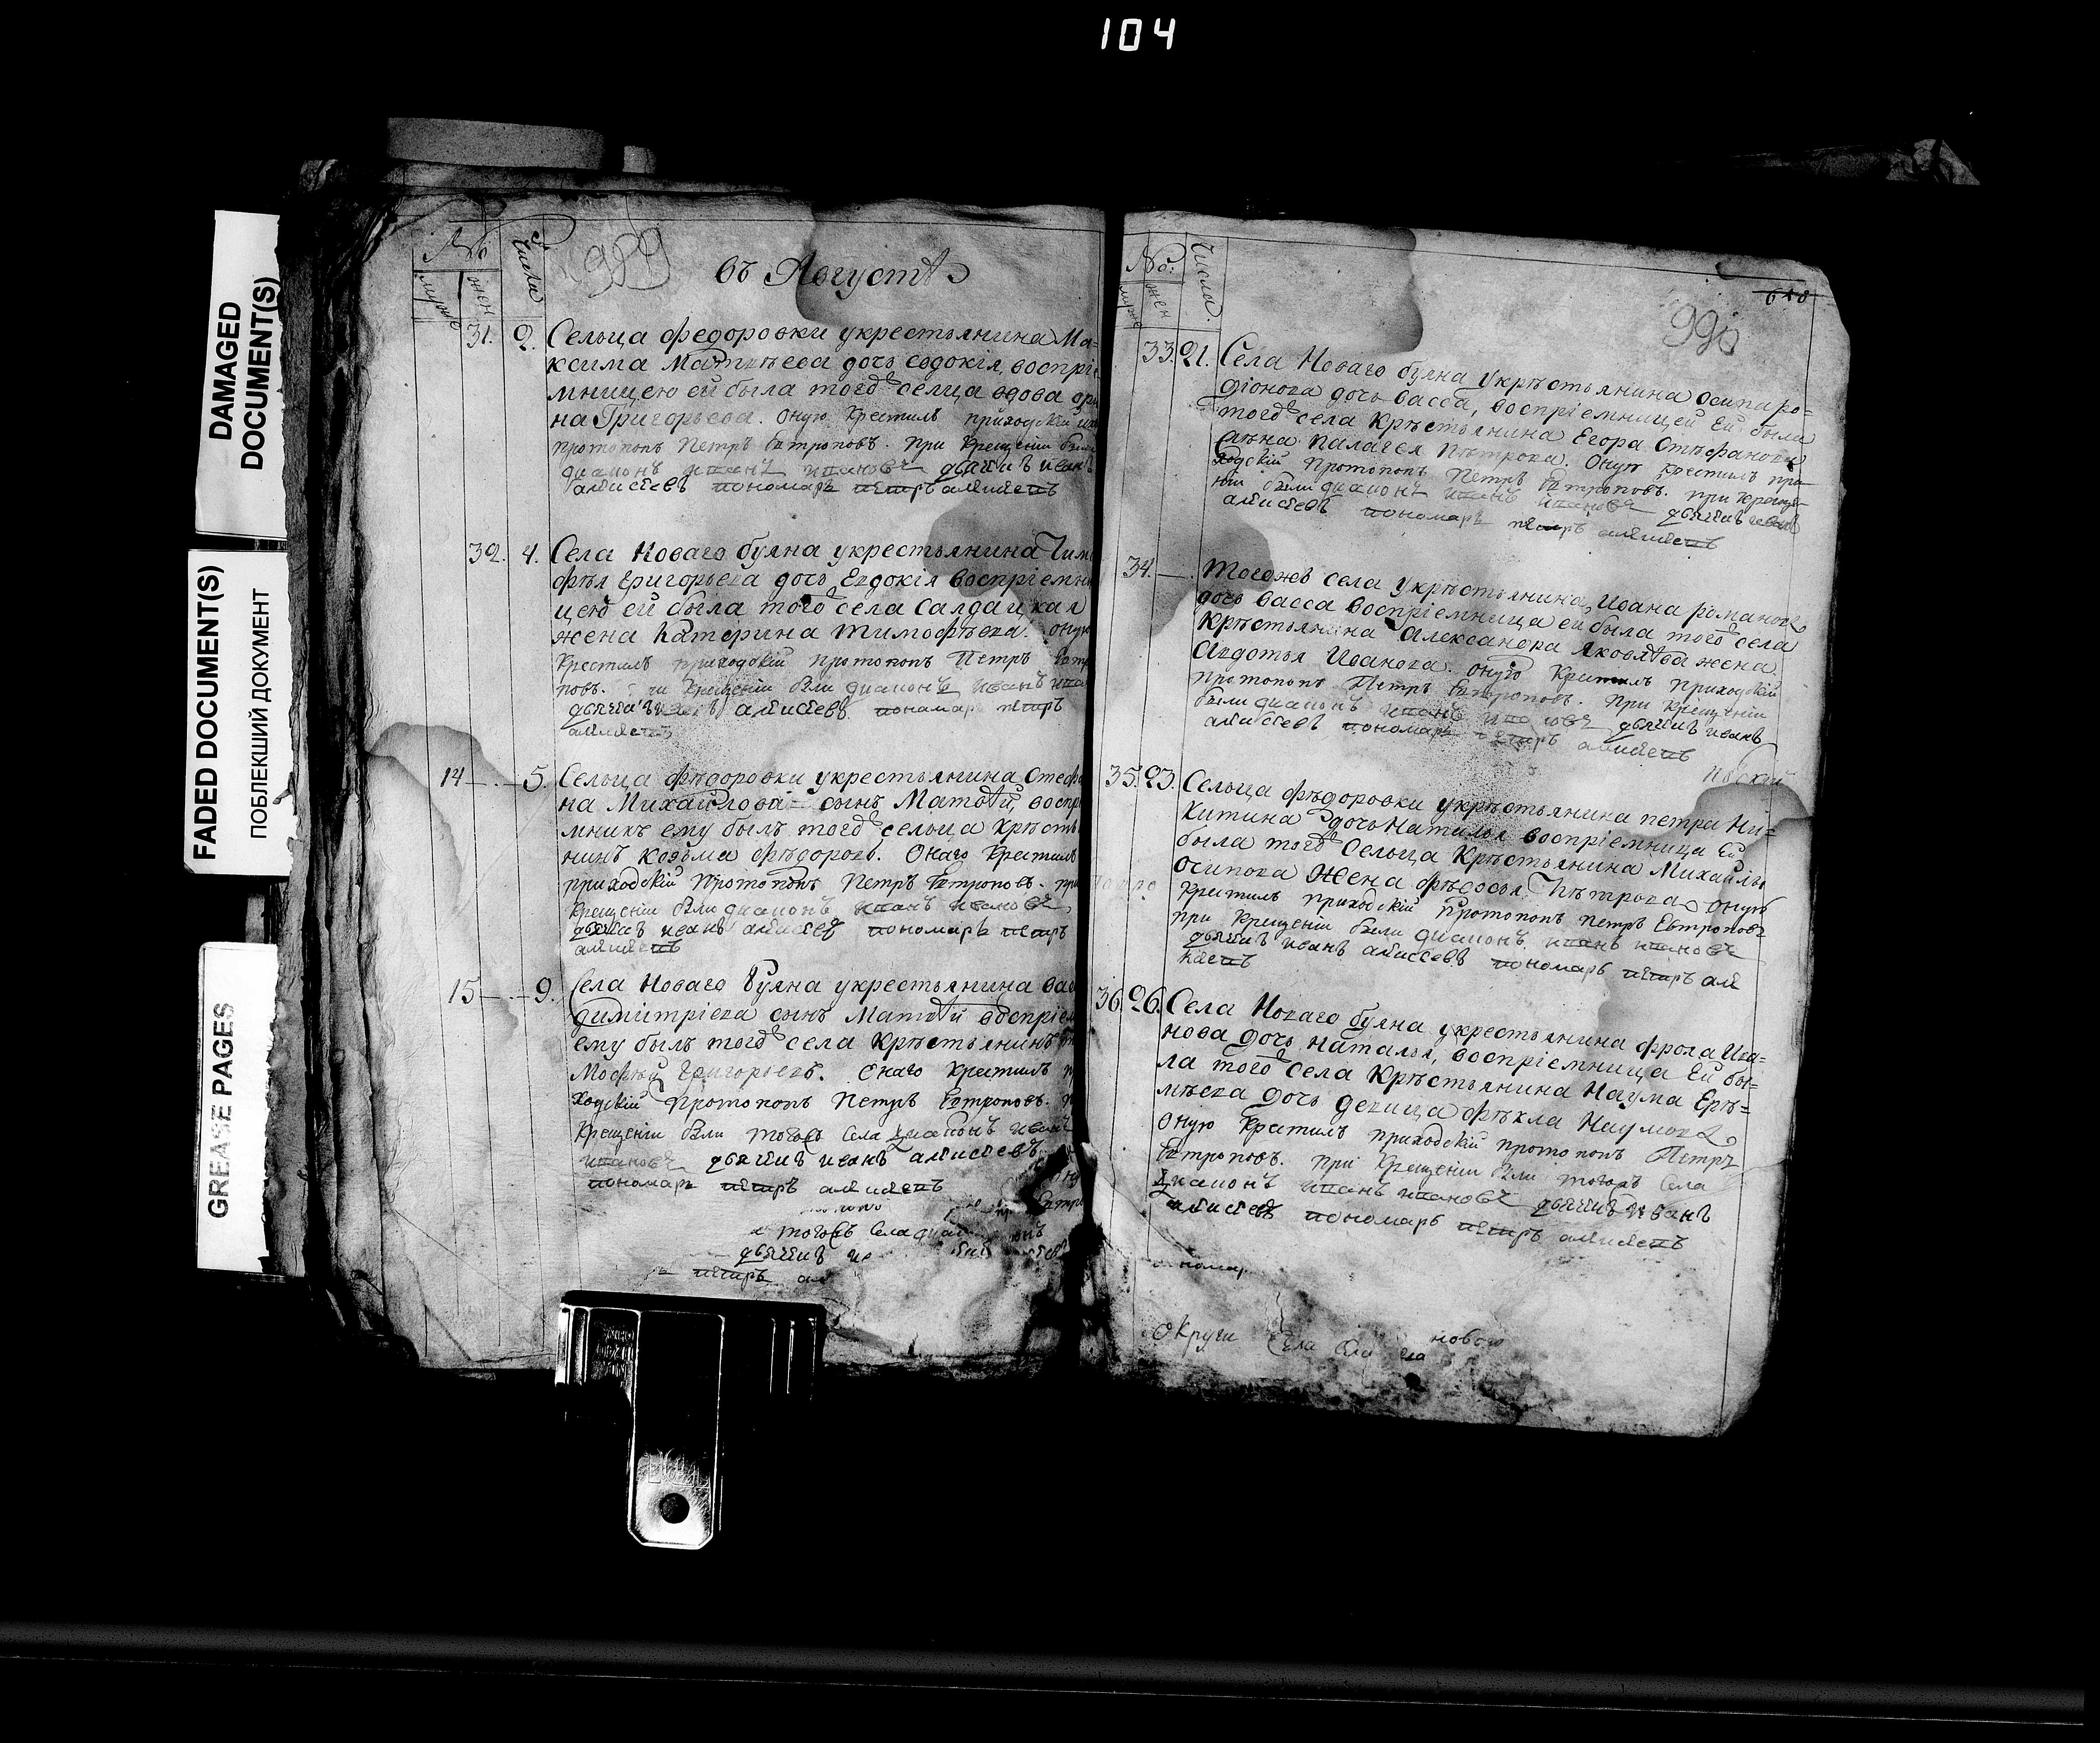 104
DAMAGED
DOCUMENT(S)
FADED DOCUMENT(S)
ПОБЛЕКШИЙ ДОКУМЕНТ
GREASE PAGES
№
Числа
муже
жен
989
въ Августѣ
31. 2. Сельца федоровки укрестьянина Ма-
ксима Матвѣева дочь евдокія, воспріе
мницею ей была тогоже селца вдова ори
на Григорьева. Оную Крестилъ приходскій
протопопъ Петръ Евтроповъ. При Крещеніи были
диаконъ иванъ ивановъ дьячикъ иванъ
алексеевъ пономарь петръ алексеевъ
32. 4. Села Новаго буяна укрестьянина Тим
фея Григорьева дочь Евдокія воспріемни
цею ей была тогоже села салдацкая
жена Катерина Тимофѣева. Оную
Крестилъ приходскій протопопъ Петръ Евтро
повъ. при Крещеніи были диаконъ иванъ ива
дьячикъ иванъ алексеевъ пономарь петръ
алексеевъ
14 — 5. Сельца фѣдоровки укрестьянина Стеф
на Михайлова сынъ Матвѣй, воспр
мникъ ему былъ тогоже сельца Крѣсть
нинъ козьма фѣдоровъ. Онаго Крестилъ
приходскій Протопопъ Петръ Евтроповъ. при
Крещеніи были диаконъ иванъ ивановъ,
дьячикъ иванъ алексеевъ пономарь петръ
алексеевъ
15 — 9. Села Новаго Буяна укрестьянина Вас
димитріева сынъ Матвѣй воспріем
ему былъ тогоже села Крѣстьянинъ
Мосфѣй Григорьевъ. Онаго Крестилъ
ходскій Протопопъ Петръ Евтроповъ.
Крещеніи были тогожъ Села диаконъ иванъ
ивановъ дьячикъ иванъ алексеевъ
пономарь петръ алексеевъ
тогожъ Села
дьячикъ
петръ
№:
Числа.
муже
жен
648
990
33. 21. Села Новаго буяна Укрѣстьянина Осипа ро-
діонова дочь васса, воспріемницей Ей была
тогоже села Крѣстьянина Егора Стѣфанова
жѣна Палагея Пѣтрова. Оную Крестилъ при
ходскій Протопопъ Петръ Евтроповъ. при Креще-
ніи были диаконъ иванъ ивановъ дьячикъ иванъ
алексеевъ пономарь петръ алексеевъ
34. — Тогожъ села Укрѣстьянина, Ивана романова
дочь васса воспріемница ей была тогоже села
Крѣстьянина Александра Яковлѣва жена
Авдотья Иванова. Оную Крестилъ Приходскій
протопопъ Петръ Евтроповъ. При Крещеніи
были диаконъ иванъ ивановъ дьячикъ иванъ
алексеевъ пономарь петръ алексеевъ
35. 23. Сельца фѣдоровки укрѣстьянина петра Ни-
китина дочь Наталья воспріемница Ей
была тогоже Сельца Крѣстьянина Михайлы
Осипова Жена фѣдосья Пѣтрова. Оную
Крестилъ приходскій Протопопъ петръ Евтроповъ
при Крещеніи были диаконъ иванъ ивановъ
дьячикъ иванъ алексеевъ пономарь петръ але
ксеевъ
36. 26. Села Новаго буяна укрестьянина фрола Ива-
нова дочь наталья, воспріемница Ей бы-
ла тогоже села Крѣстьянина Наума Ерѣ-
мѣева дочь девица фѣкла Наумова
Оную Крестилъ приходскій протопопъ Петръ
Евтроповъ. При Крещеніи были тогожъ Села
диаконъ иванъ ивановъ дьячикъ иванъ
алексеевъ пономарь петръ алексеевъ
Округи Села новаго